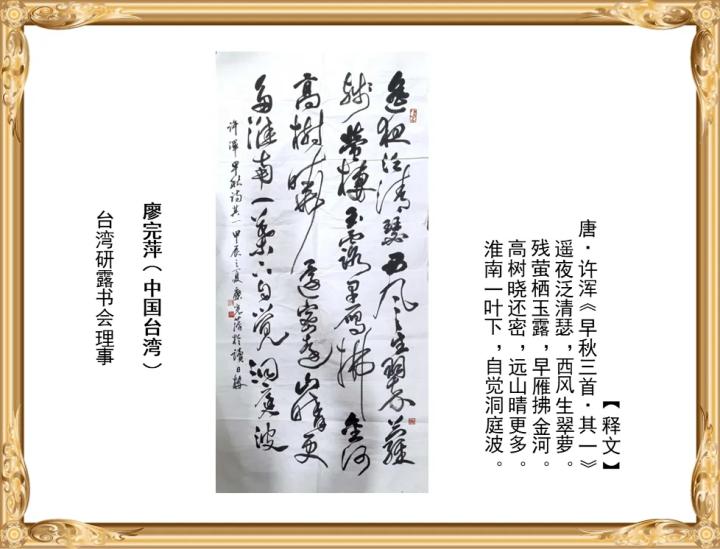 【释文】
唐·许浑《早秋三首·其一》
遥夜泛清瑟，西风生翠萝。
残萤栖玉露，早雁拂金河。
高树晓还密，远山晴更多。
淮南一叶下，自觉洞庭波。
遥夜泛清瑟西风生翠萝
残萤栖玉露早雁拂金河
高树晓还密远山晴更
多淮南一叶下自觉洞庭波
许浑早秋诗其一甲辰之夏廖完萍於读日楼
廖完萍（中国台湾）
台湾研露书会理事